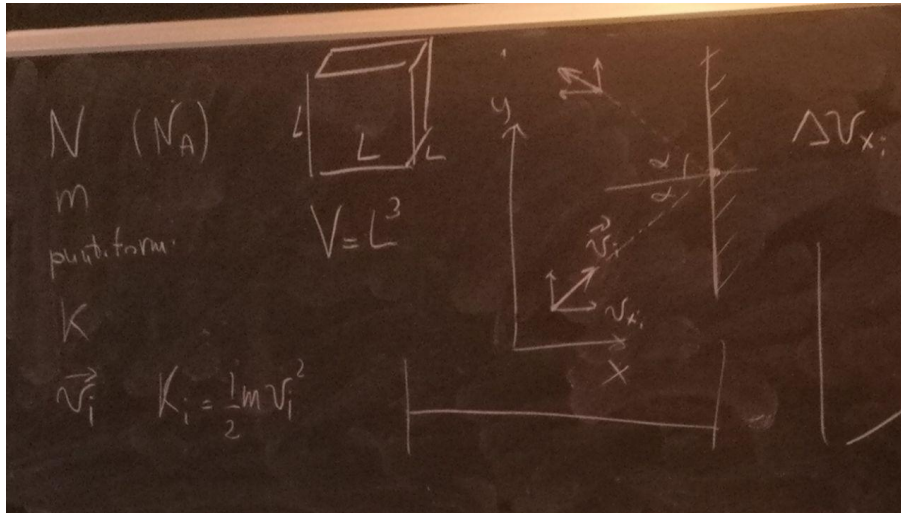 N (N_A)
m
puntiformi
K
v⃗_i K_i = 1/2 m v_i^2
L
L
L
V = L^3
y
α
α
v⃗_i
v_{x_i}
x
Δv_{x_i}